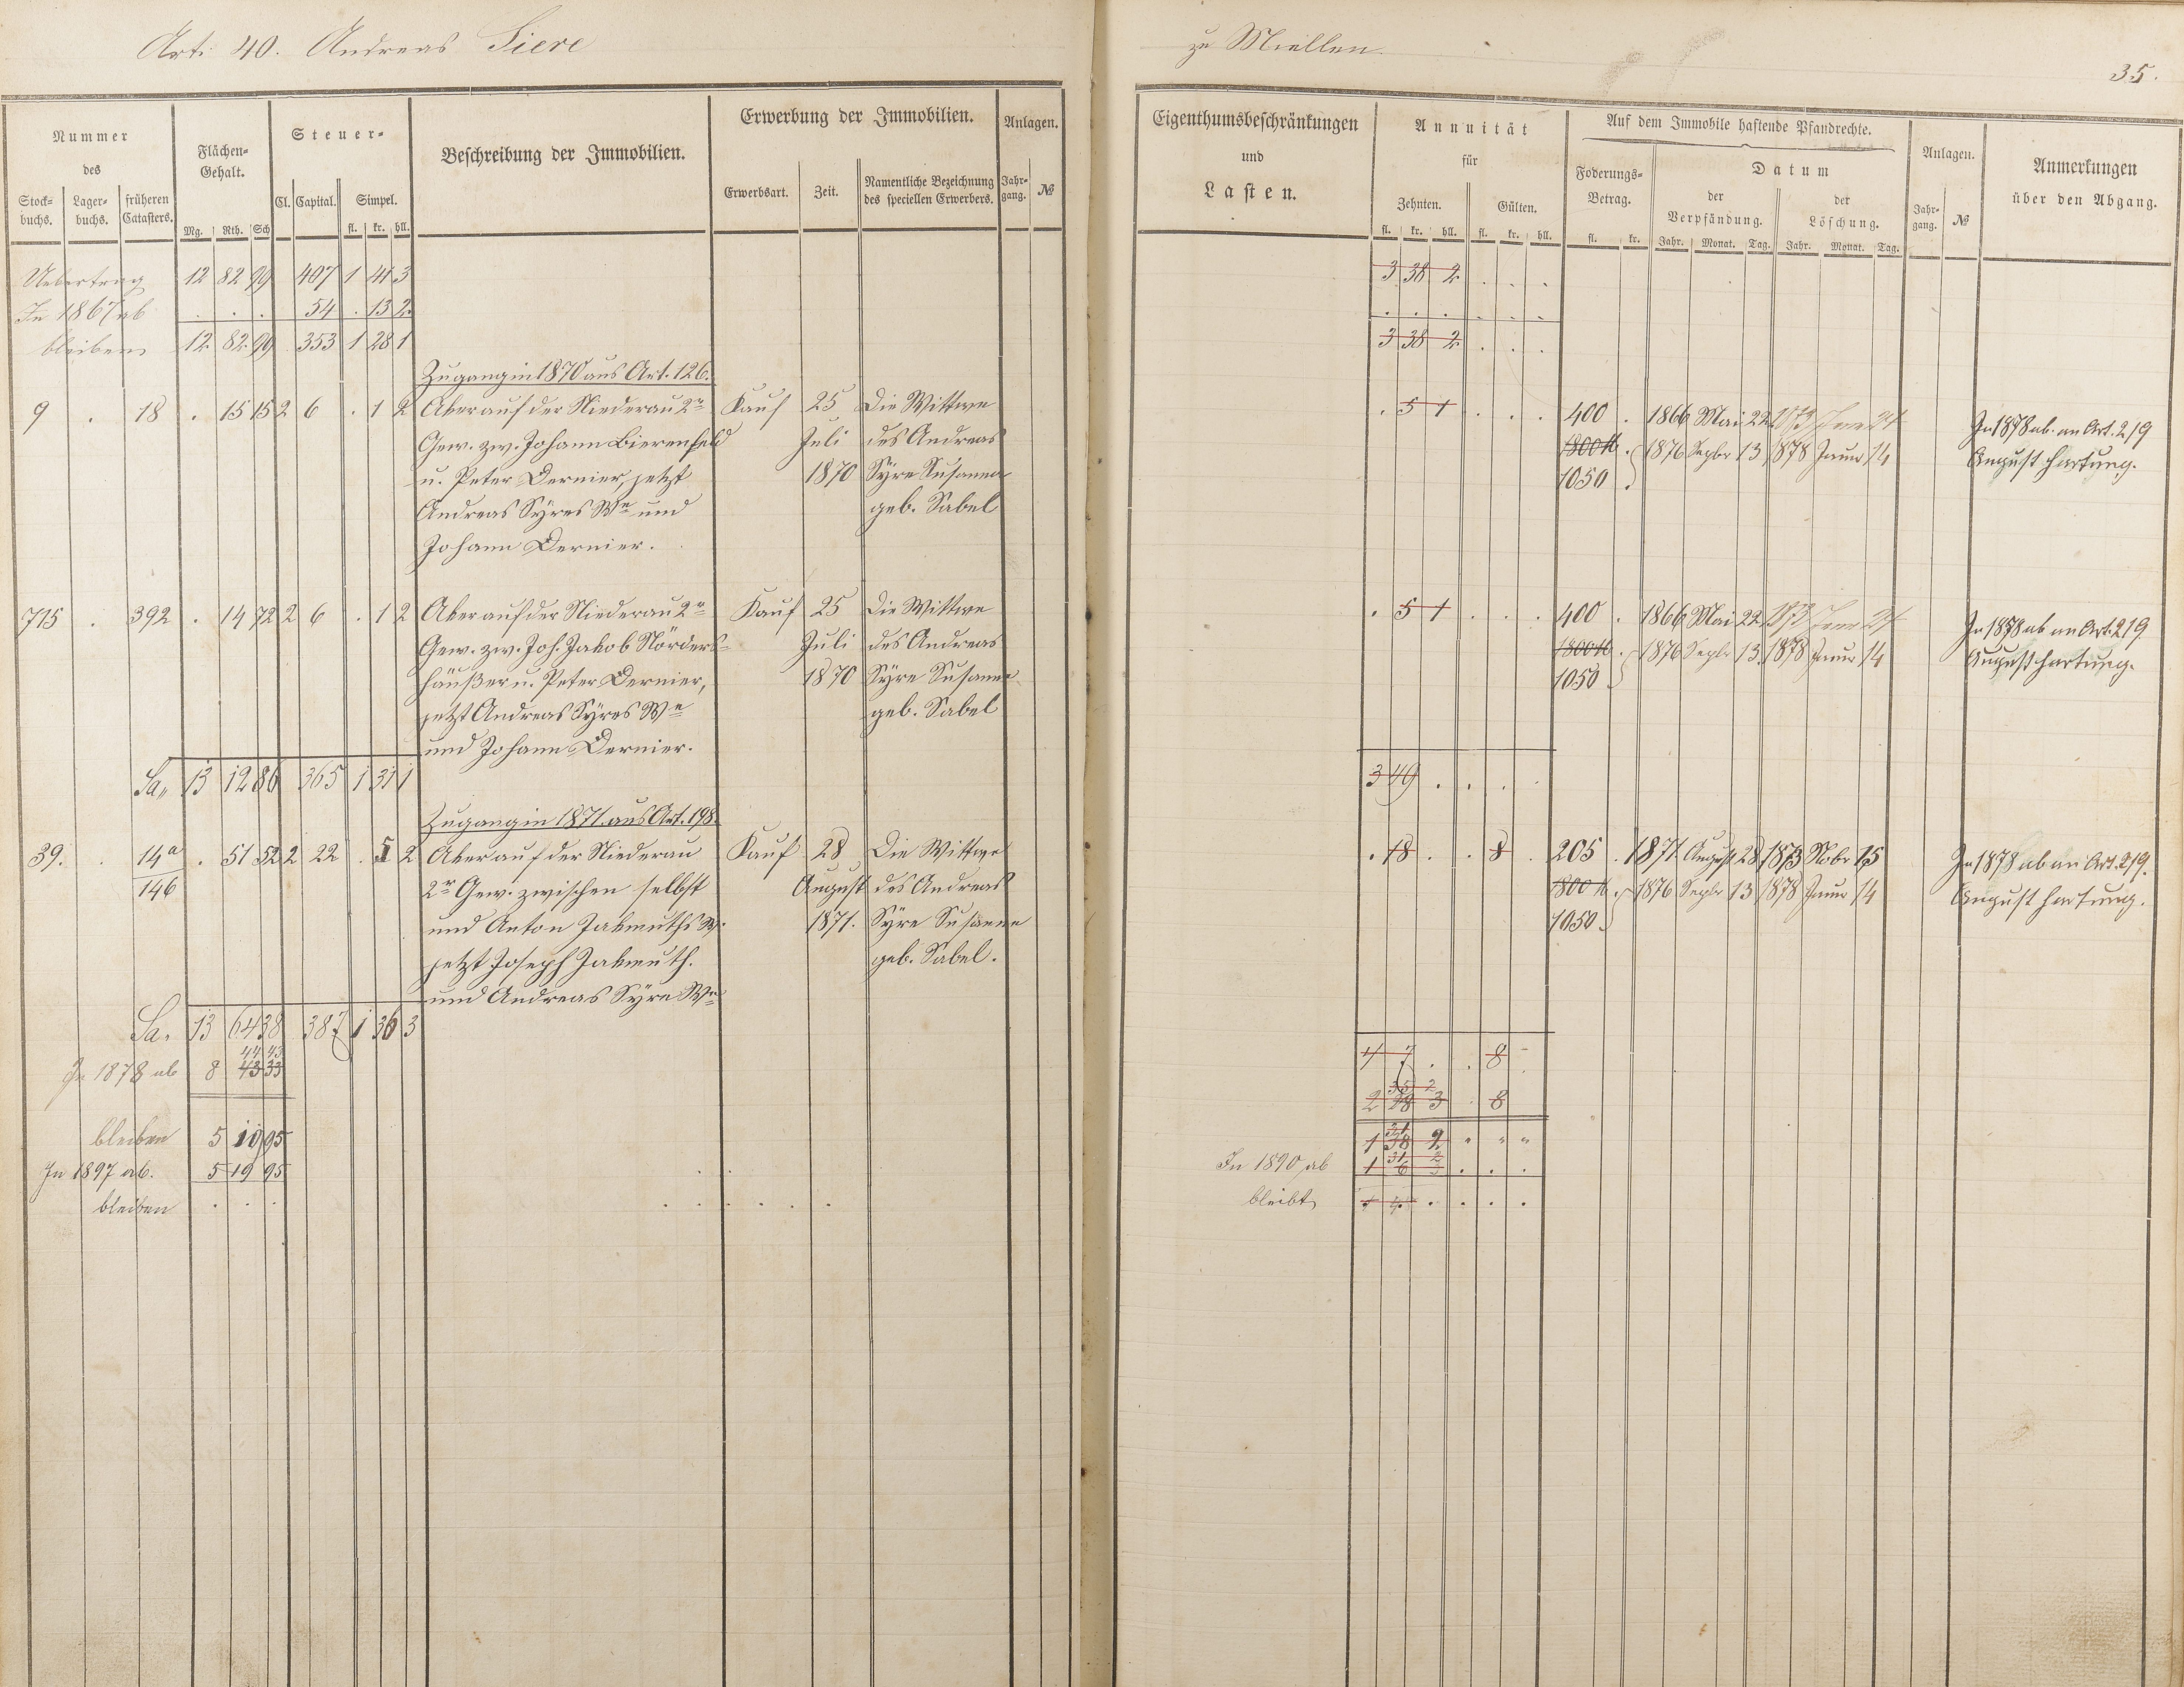 Art. 40. Andreas Siere
zu Miellen.
35.
Nummer des
Stock-buchs. Lager-buchs. früheren Catasters.
Flächen-Gehalt.
Mg. Rth. Sch
Steuer-
Cl. Capital. Simpel.
fl. kr. hll.
Beschreibung der Immobilien.
Erwerbung der Immobilien.
Erwerbsart. Zeit. Namentliche Bezeichnung des speciellen Erwerbers.
Anlagen.
Jahr-gang. №
Eigenthumsbeschränkungen
und
Lasten.
Annuität
für
Zehnten. Gülten.
fl. kr. hll. fl. kr. hll.
Auf dem Immobile haftende Pfandrechte.
Foderungs-Betrag.
fl. kr.
Datum
der Verpfändung. der Löschung.
Jahr. Monat. Tag. Jahr. Monat. Tag.
Anlagen.
Jahr-gang. №
Anmerkungen
über den Abgang.
Uebertrag 12 82 99 407 1 41 3
3 38 2 . . .
In 1867 ab . . . 54 . 13 2
. . . . . .
bleiben 12 82 99 353 1 28 1
3 38 2 . . .
Zugang in 1870 aus Art. 126.
9 . 18 . 15 15 2 6 . 1 2 Aker auf der Niederau 2r Kauf 25 Die Wittwe
Gew. zw. Johann Bierenfeld Juli des Andreas
u. Peter Dernier, jetzt 1870 Syre Susanna
Andreas Syres We und geb. Sabel
Johann Dernier.
. 5 1 . . . 400 . 1866 Mai 22 1873
1800 M . 1876 Sepbr 13 1878 Janur 14
1050
In 1878 ab. an Art. 219
August Hartung.
715 . 392 . 14 72 2 6 . 1 2 Aker auf der Niederau 2r Kauf 25 Die Wittwe
Gew. zw. Joh. Jakob Nörders- Juli des Andreas
häußer u. Peter Dernier, 1870 Syre Susanna
jetzt Andreas Syres We geb. Sabel
und Johann Dernier.
. 5 1 . . . 400 . 1866 Mai 22 1873
1800 M . 1876 Sepbr 13 1878 Janur 14
1050
In 1878 ab an Art. 219
August Hartung.
Sa. 13 12 86 365 1 31 1
3 49 . . . .
Zugang in 1871. aus Art. 198.
39. . 14a . 51 52 2 22 . 5 2 Aker auf der Niederau Kauf 28 Die Wittwe
146 2r Gew. zwischen selbst August des Andreas
und Anton Jakmuths W. 1871. Syre Susanna
jetzt Joseph Jakmuth. geb. Sabel.
und Andreas Syre We
. 18 . . 8 . 205 . 1871 August 28 1873 Nobr 15
1800 M . 1876 Sepbr 13 1878 Janur 14
1050
In 1878 ab an Art. 219.
August Hartung.
Sa. 13 64 38 387 1 36 3
4 7 . . 8 -
44 43
In 1878 ab 8 43 33
35 2
2 28 3 . 8
bleiben 5 19 95
31
1 38 2 " " "
In 1897 ab. 5 19 95
31 2
In 1890 ab 1 6 3 . . .
bleiben . . .
bleibt . . . .